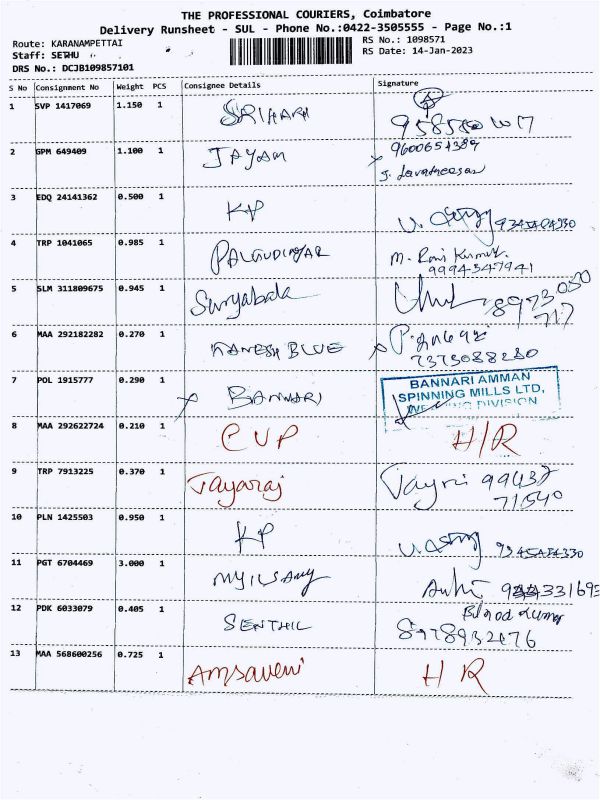 THE PROFESSIONAL COURIERS, Coimbatore
Delivery Runsheet - SUL - Phone No.:0422-3505555 - Page No.:1
Route: KARANAMPETTAI
RS No.: 1098571
Staff: SETHU
RS Date: 14-Jan-2023
DRS No.: DCJB109857101
S No Consignment No Weight PCS Consignee Details Signature
1 SVP 1417069 1.150 1 SRIHARI
2 GPM 649409 1.100 1 JAYAM 9600654389
3 EDQ 24141362 0.500 1 KP
4 TRP 1041065 0.985 1 M. Ravi Kumar.
9994347941
5 SLM 311809675 0.945 1 Suryabala 8973050
717
6 MAA 292182282 0.270 1 GANESH BLUE
7373088280
7 POL 1915777 0.290 1 BANNARI BANNARI AMMAN
SPINNING MILLS LTD,
DIVISION
8 MAA 292622724 0.210 1 CUP H/R
9 TRP 7913225 0.370 1 Jayaraj 99432
71540
10 PLN 1425503 0.950 1 KP
11 PGT 6704469 3.000 1
12 PDK 6033079 0.405 1 SENTHIL Kumar
13 MAA 568600256 0.725 1 Amsaveni H R